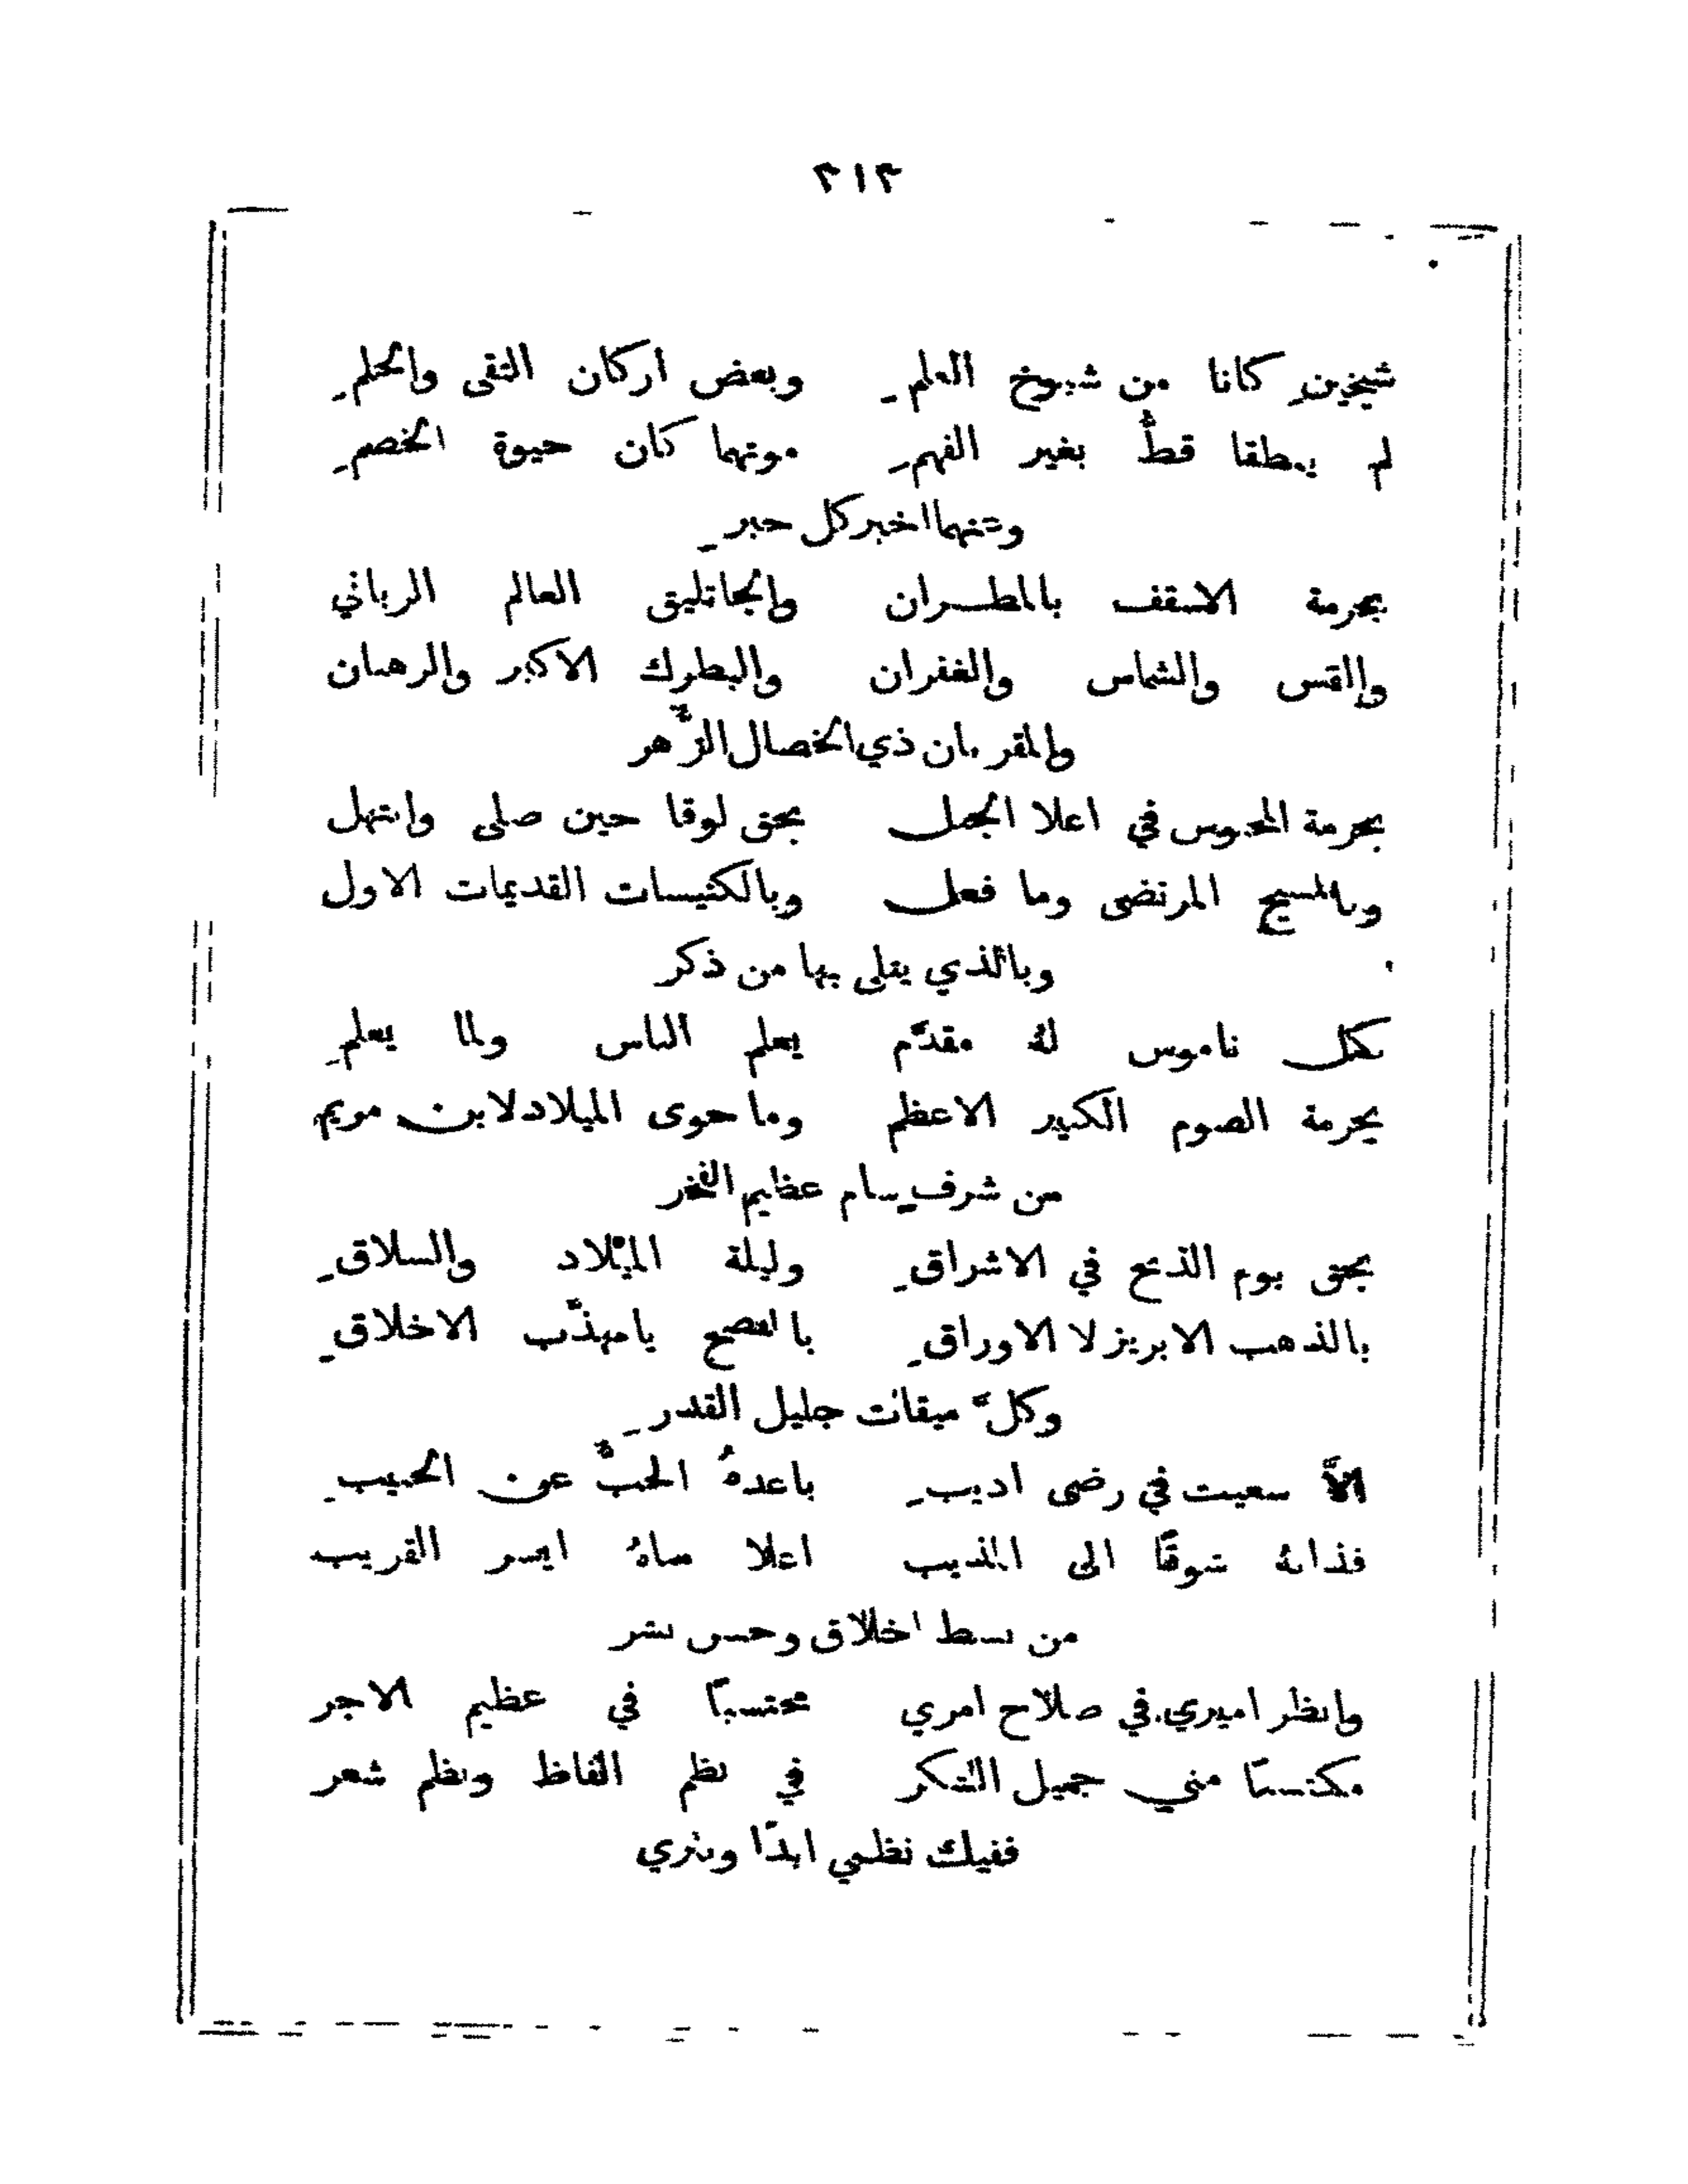 ٢١٣
شيخين كانا من شيوخ العلم وبعض اركان التقى والحلم
لم ينطقا قطُّ بغير الفهم موتهما كان حيوة الخصم
وعنهما اخبر كل حبر
بحرمة الاسقف بالمطران والجاثليق العالم الرباني
والقس والشماس والغفران والبطرك الاكبر والرهبان
والمقربان ذي الخصال الزُّهر
بحرمة المحبوس في اعلا الجبل بحق لوقا حين صلى وابتهل
وبالمسيح المرتضى وما فعل وبالكنيسات القديمات الاول
وبالذي يتلى بها من ذكر
بكل ناموس لهُ مقدَّم يعلم الناس ولما يعلم
بحرمة الصوم الكبير الاعظم وما حوى الميلاد لابن مريم
من شرف سام عظيم الفخر
بحق يوم الذبح في الاشراق وليلة الميلاد والسلاق
بالذهب الابريز لا الاوراق بالفصح يا مهذَّب الاخلاق
وكلّ ميقات جليل القدر
الاَّ سعيت في رضى اديب باعدهُ الحبُّ عن الحبيب
فذابهُ شوقًا الى المذيب اعلا مناهُ ايسر القريب
من بسط اخلاق وحسن بشر
وانظر اميري في صلاح امري محتسبًا في عظيم الاجر
مكتسبًا مني جميل الشكر في نظم الفاظ ونظم شعر
ففيك نظمي ابدًا ونثري